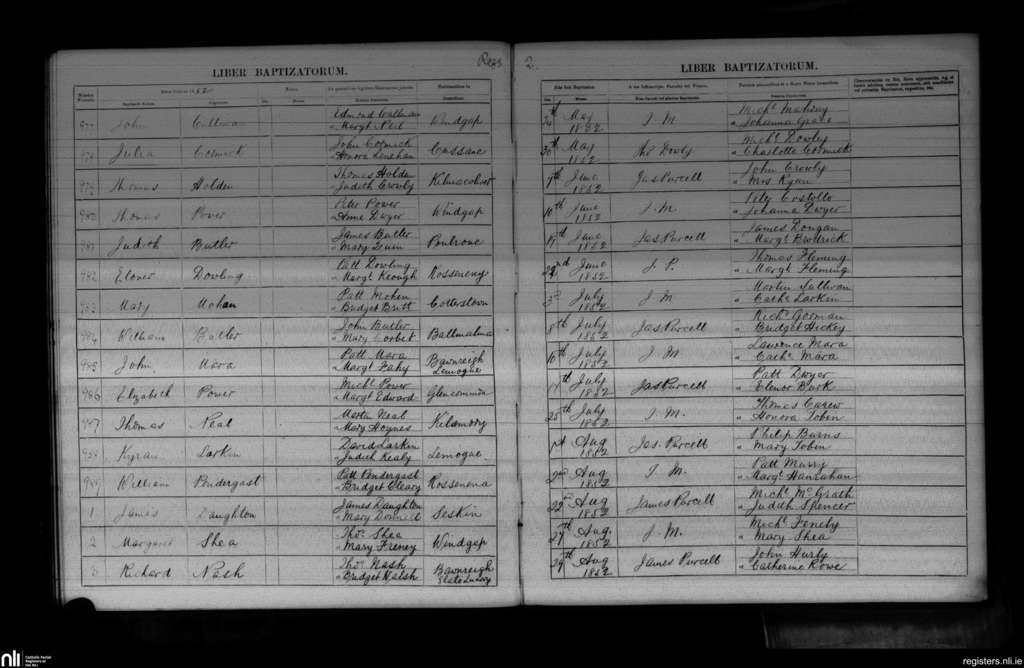 Regs. 2.
LIBER BAPTIZATORUM.
1852
977 John Cullinan Edmond Cullinan Windgap
" Margt Neil
978 Julia Cormick John Cormick Cussane
Honora Lenehan
979 Thomas Holden Thomas Holden Kilmacoliver
" Judith Crowly
980 Thomas Power Peter Power Windgap
" Anne Dwyer
981 Judith Butler James Butler Poulrone
" Mary Quin
982 Elener Dowling Patt Dowling Rosseneny
" Margt Keough
983 Mary Mohan Patt Mohen Cotterstown
" Budget Britt
984 William Butler John Butler
" Mary Corbet
985 John Mara Patt Mara Bawnreigh
" Margt Fahy Lemogue
986 Elizabeth Power Michl Power Glencommin
" Margt Edward
987 Thomas Neal Martin Neal Kilamory
" Mary Hoynes
988 Kyran Larkin David Larkin Lemogue
" Judith Kealy
989 William Pendergast Patt Pendergast Rossenena
" Bridget Cleary
1 James Daughton James Daughton Seskin
" Mary
2 Margaret Shea Thos. Shea Windgap
" Mary Freney
3 Richard Nash Thos. Nash Bawnreigh
" Budget Walsh Slate Quarry
LIBER BAPTIZATORUM.
24th May J. M. Michl Mahony
1852 " Johanna Grace
30th May Thos Dowly Michl Dowly
1852 " Charlotte Cormick
7th June Jas Purcell John Crowly
1852 " Mrs Ryan
10th June J. M. Peter Costollo
1852 " Johanna Dwyer
19th June Jas Purcell James Dongan
1852 " Margt Buttrick
22nd June J. P. Thomas Fleming
1852 " Margt Fleming
3rd July J. M. Martin Sullivan
1852 " Cathe Larkin
8th July Jas Purcell Richd Gorman
1852 " Budget Hickey
10th July J. M. Lawrence Mara
1852 " Cathe Mara
17th July Jas Purcell Patt Dwyer
1852 " Elenor Burk
25th July J. M. Thomas Carew
1852 " Honora Tobin
1st Aug Jas. Purcell Philip Burns
1852 " Mary Tobin
2nd Aug J. M. Patt Murry
1852 " Margt Hanrahan
22nd Aug James Purcell Michl McGrath
1852 " Judith Spencer
27th Aug J. M. Michl Fenely
1852 " Mary Shea
29th Aug James Purcell John Hurly
1852 " Catherine Rowe
nli Catholic Parish
Registers at
the NLI
registers.nli.ie